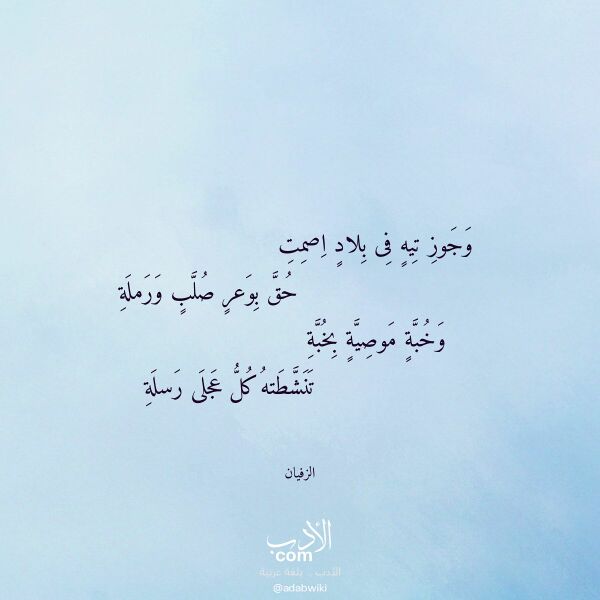 وَجَوزِ تِيهٍ فِى بِلادٍ اِصمِتِ
حُقَّ بِوَعرٍ صُلَّبٍ وَرَملَةِ
وَخُبَّةٍ مَوصِيَّةٍ بِخُبَّةِ
تَنَشَّطَتهُ كُلُّ عَجلَى رَسلَةِ
الزفيان
الأدب
com
الأدب .. بلغة عربية
@adabwiki